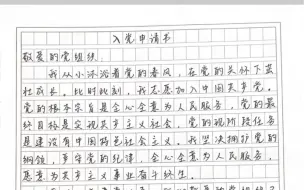 入党申请书
敬爱的党组织:
我从小沐浴着党的春风,在党的关怀下茁
壮成长。此时此刻,我志愿加入中国共产党。
党的根本宗旨是全心全意为人民服务,党的最
终目标是实现共产主义社会,党的现阶段任务
是建设有中国特色社会主义。我坚决拥护党的
纲领,遵守党的纪律,全心全意为人民服务,
愿意为共产主义事业奋斗终生。